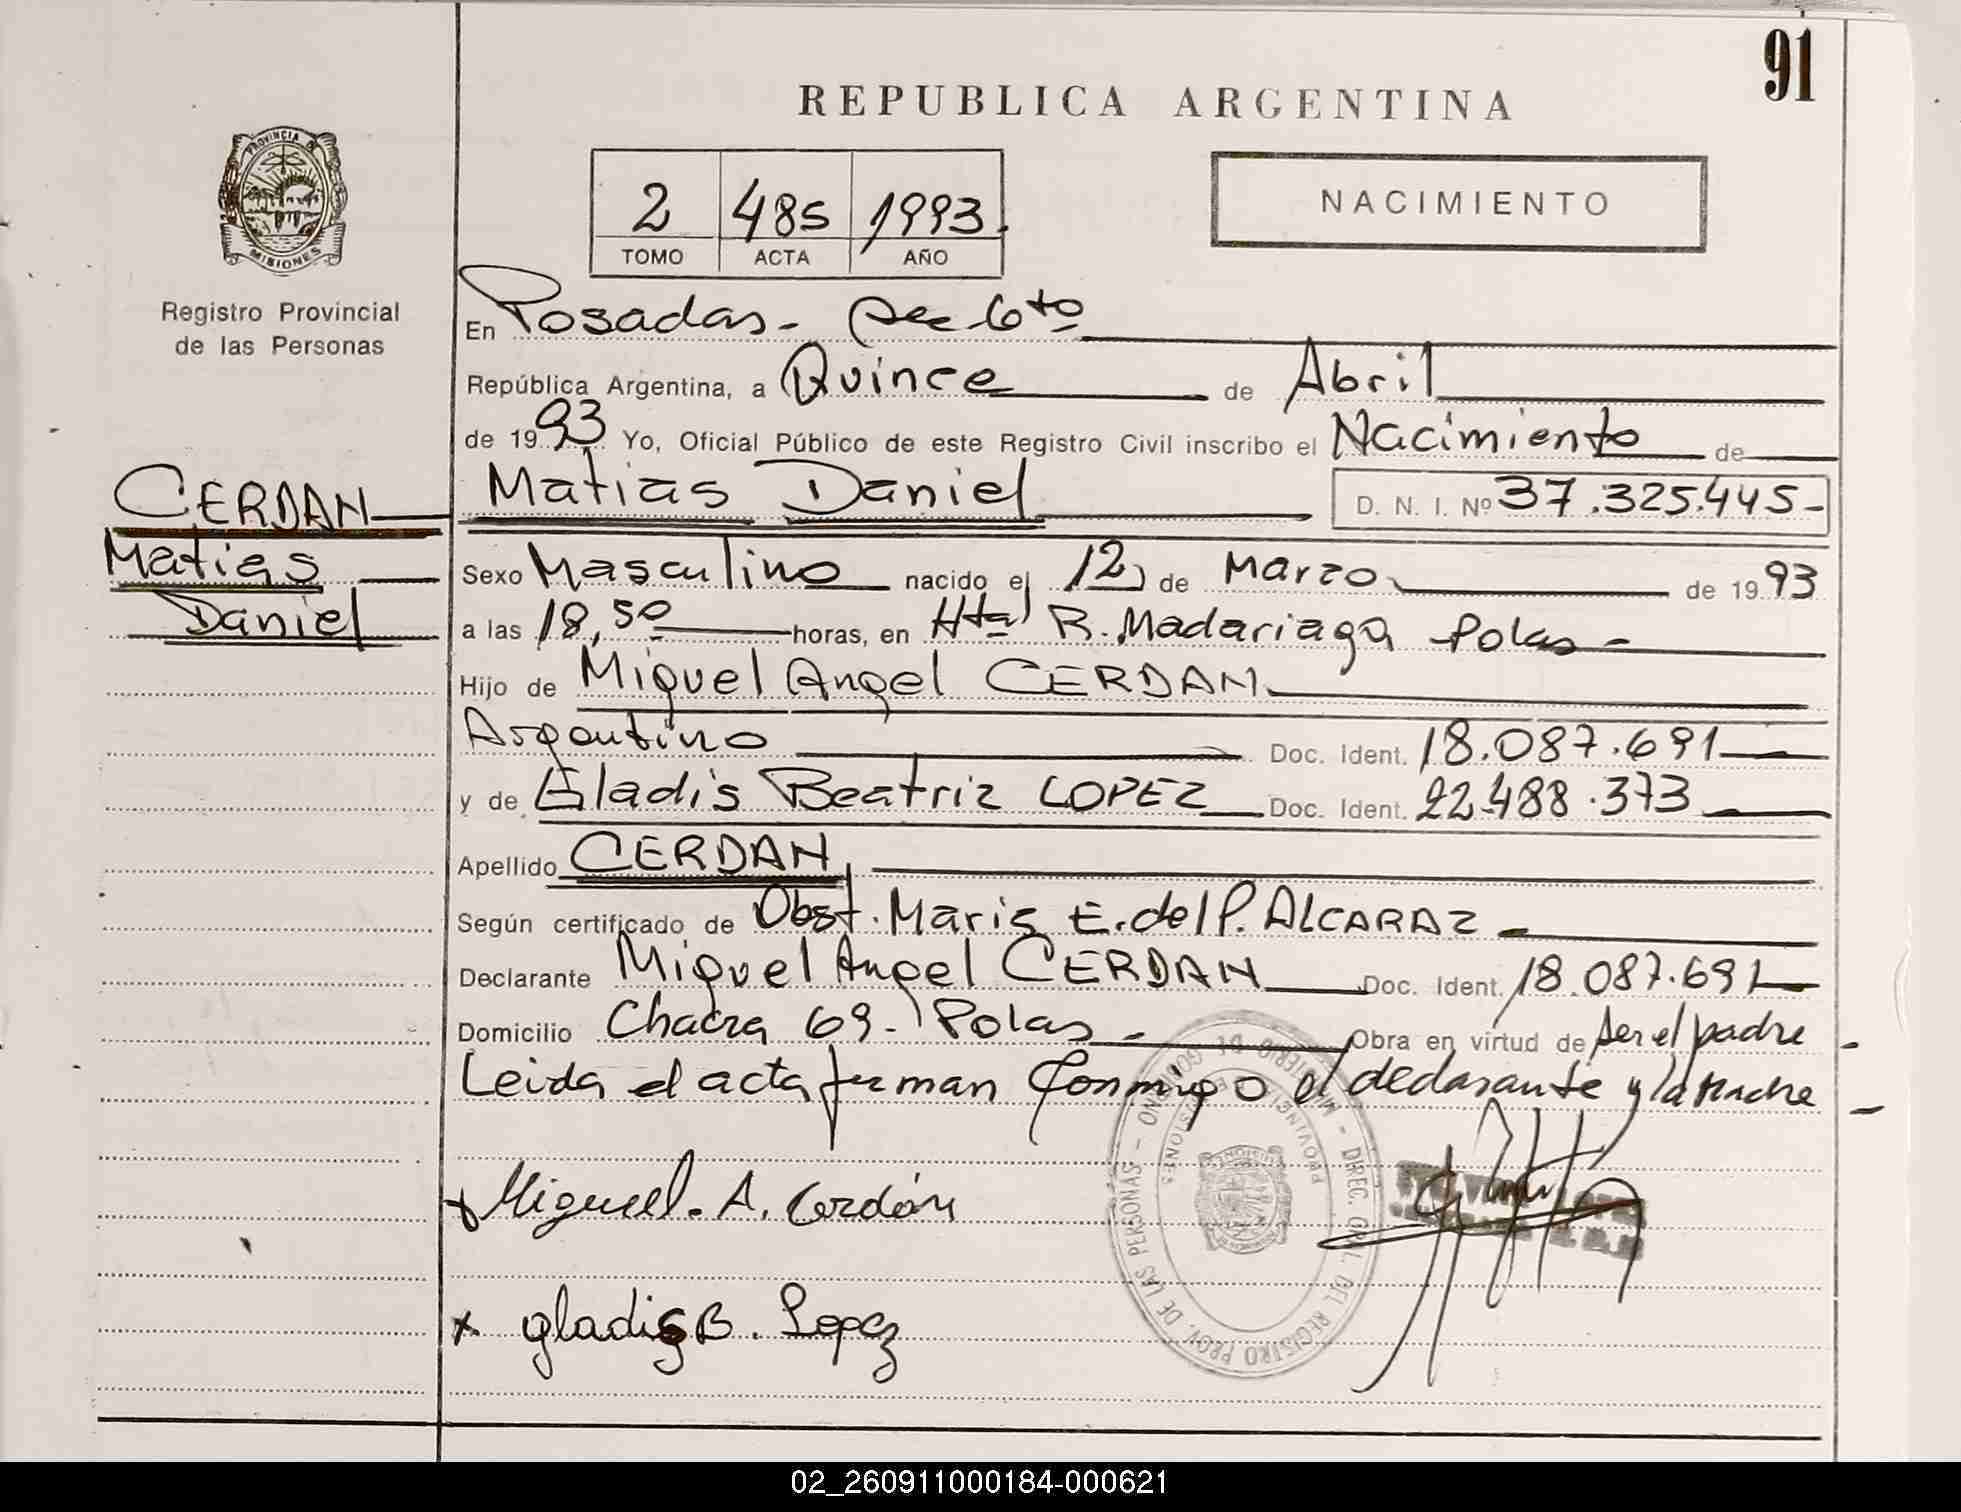 91
REPUBLICA ARGENTINA
PROVINCIA D
MISIONES
Registro Provincial
de las Personas
2 485 1993.
TOMO ACTA AÑO
NACIMIENTO
En Posadas- Sec 6to
República Argentina, a Quince de Abril
de 1993 Yo, Oficial Público de este Registro Civil inscribo el Nacimiento de
CERDAN
Matias
Daniel
Matias Daniel D. N. I. Nº 37.325.445-
Sexo Masculino nacido el 12 de Marzo de 1993
a las 18,50 horas, en Htal R. Madariaga Pdas-
Hijo de Miguel Angel CERDAN
Argentino Doc. Ident. 18.087.691
y de Gladis Beatriz LOPEZ Doc. Ident. 22.488.373
Apellido CERDAN
Según certificado de Obst. Maria E. del P. ALCARAZ
Declarante Miguel Angel CERDAN Doc. Ident. 18.087.691
Domicilio Chacra 69- Pdas- Obra en virtud de ser el padre
Leida el acta firman conmigo el declarante y la madre
x Miguel. A. Cerdán
x gladis B. Lopez
MINISTERIO DE GOBIERNO - DIREC. GRAL. DEL REGISTRO PROV. DE LAS PERSONAS -
PROVINCIA DE MISIONES
02_260911000184-000621